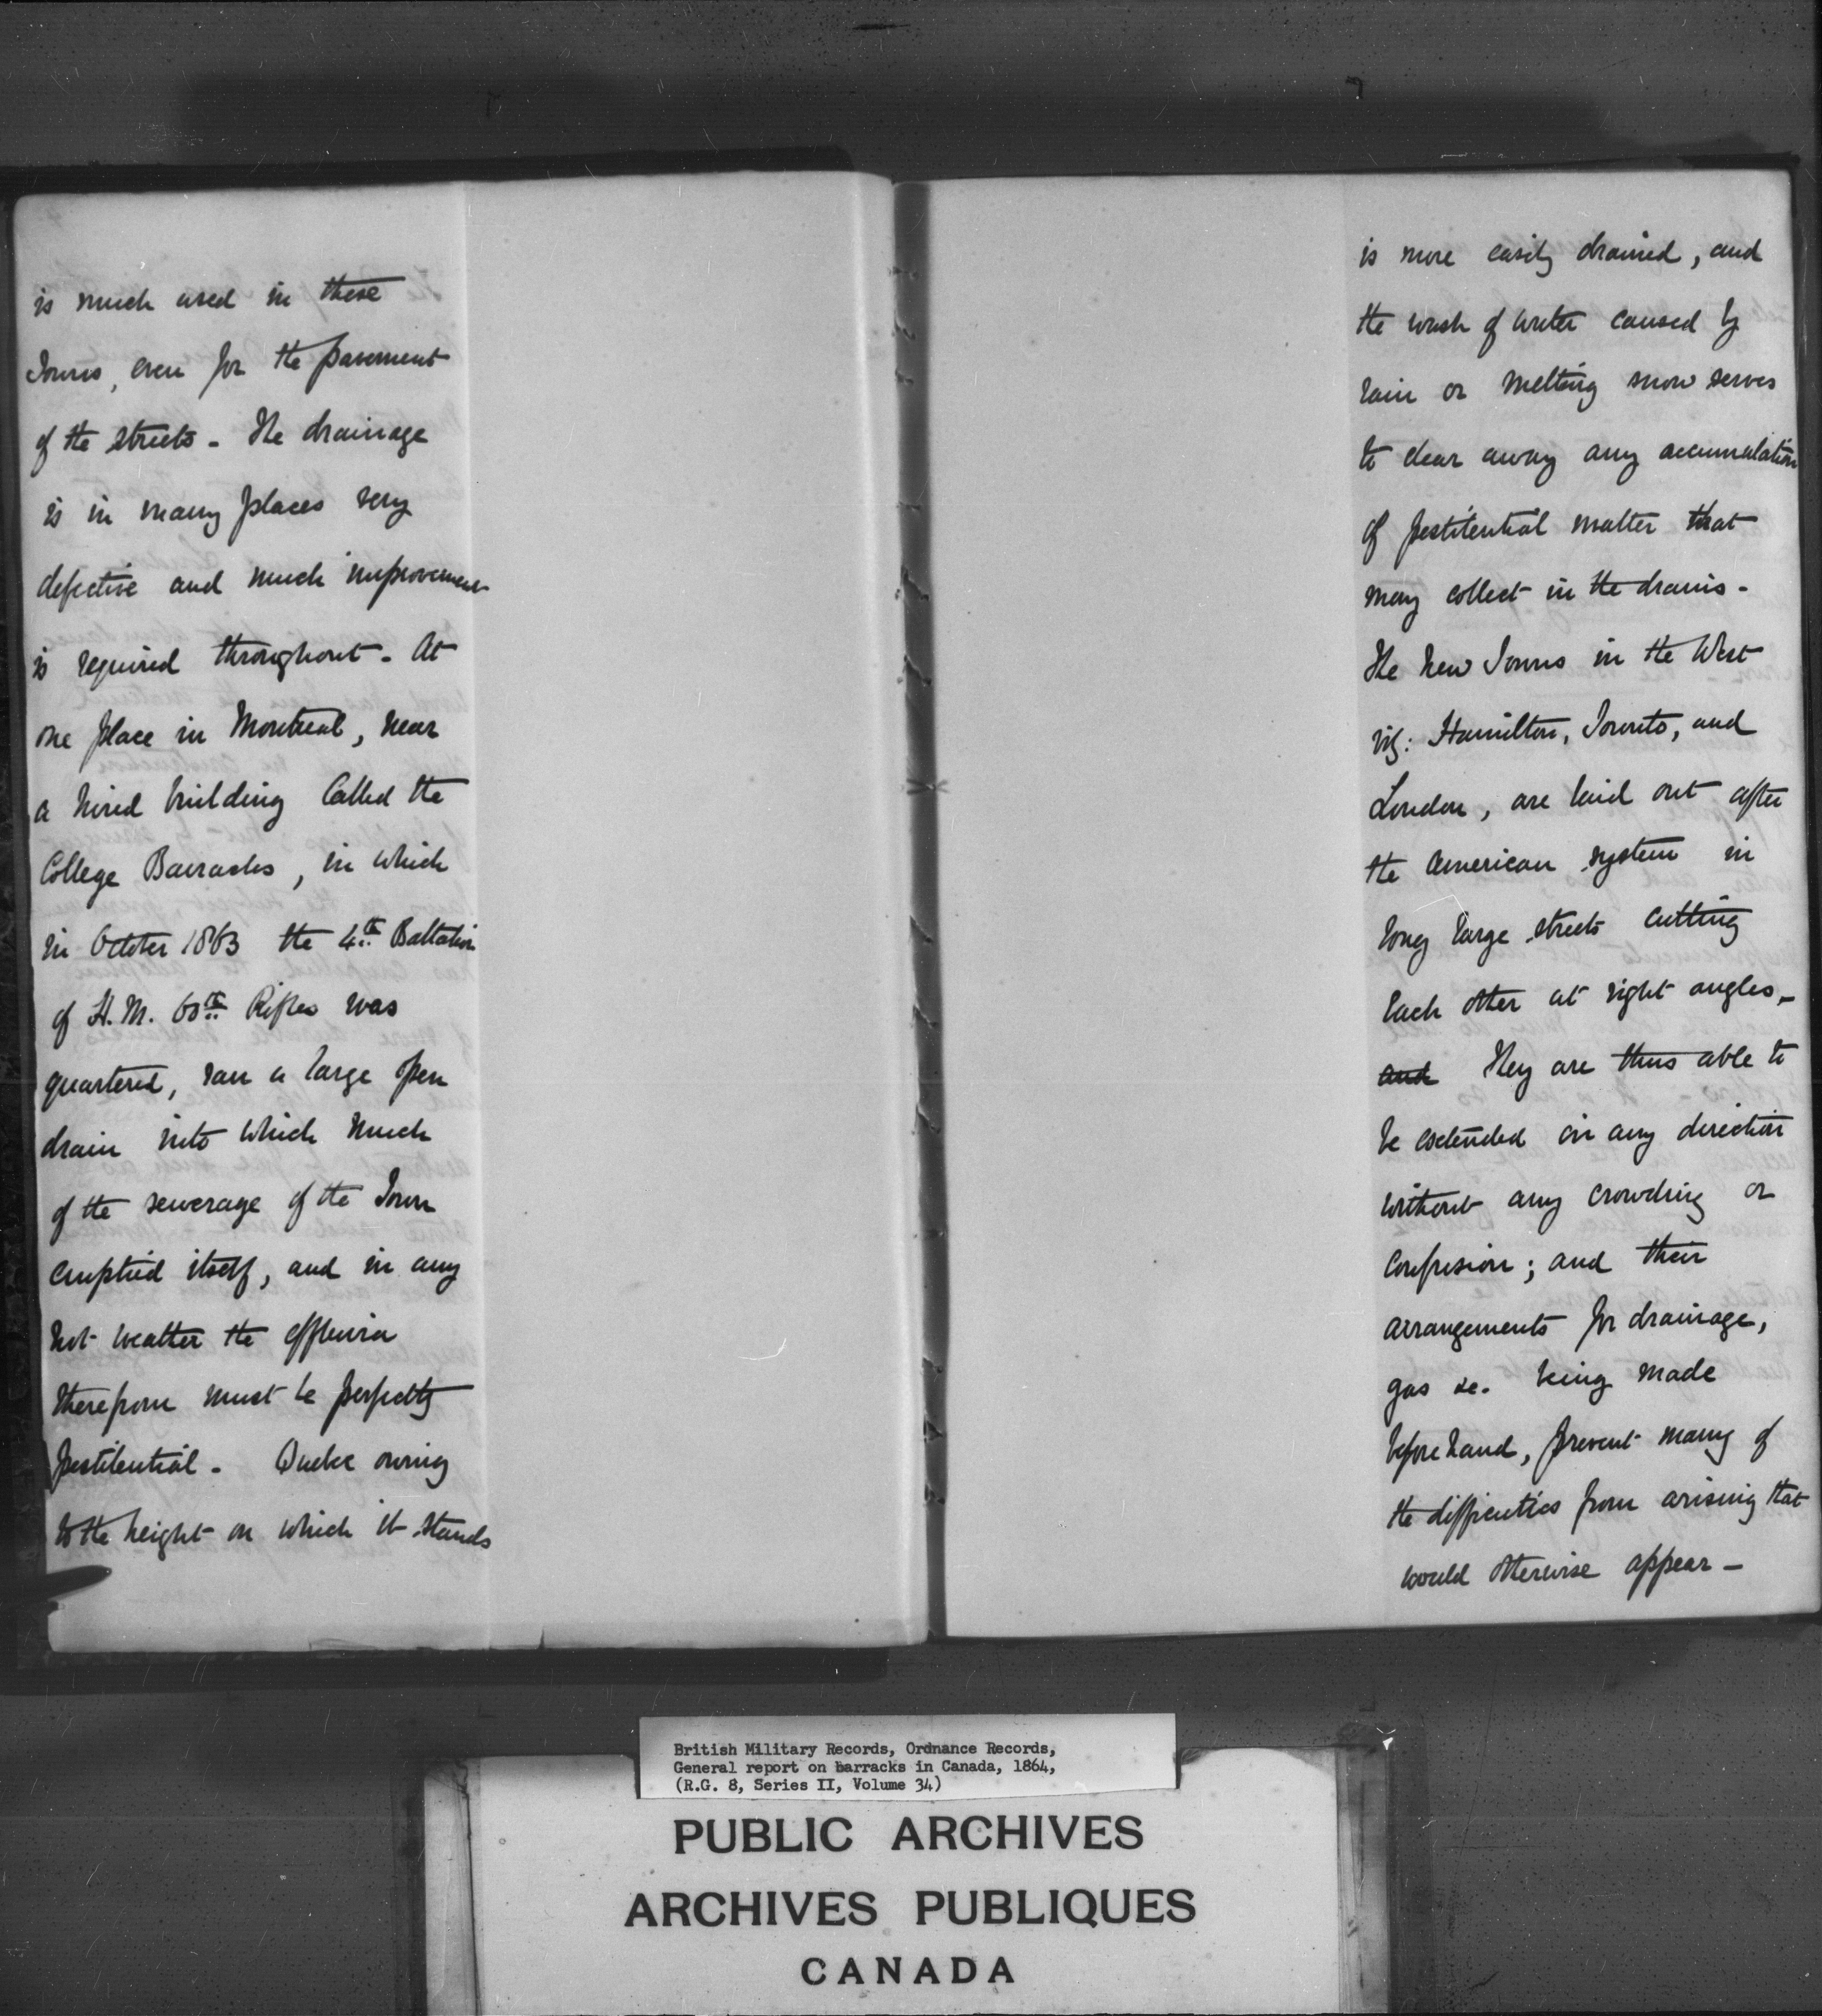 is much used in these
Towns, even for the pavement
of the streets - The drainage
is in many places very
defective and much improvement
is required throughout - At
one place in Montreal, near
a hired building called the
College Barracks, in which
in October 1863 the 4th Battalion
of H.M. 60th Rifles was
quartered, ran a large open
drain into which much
of the sewerage of the Town
emptied itself, and in any
hot weather the effluvia
therefrom must be perfectly
pestilential - Quebec owing
to the height on which it stands
is more easily drained, and
the wash of water caused by
rain or melting snow serves
to clear away any accumulation
of pestilential matter that
may collect in the drains -
The new Towns in the West
viz: Hamilton, Toronto, and
London, are laid out after
the American system in
long large streets cutting
each other at right angles -
and They are thus able to
be extended in any direction
without any crowding or
confusion; and their
arrangements for drainage,
gas &c. being made
before hand, prevent many of
the difficulties from arising that
would otherwise appear -
British Military Records, Ordnance Records,
General report on barracks in Canada, 1864,
(R.G. 8, Series II, Volume 34)
PUBLIC ARCHIVES
ARCHIVES PUBLIQUES
CANADA